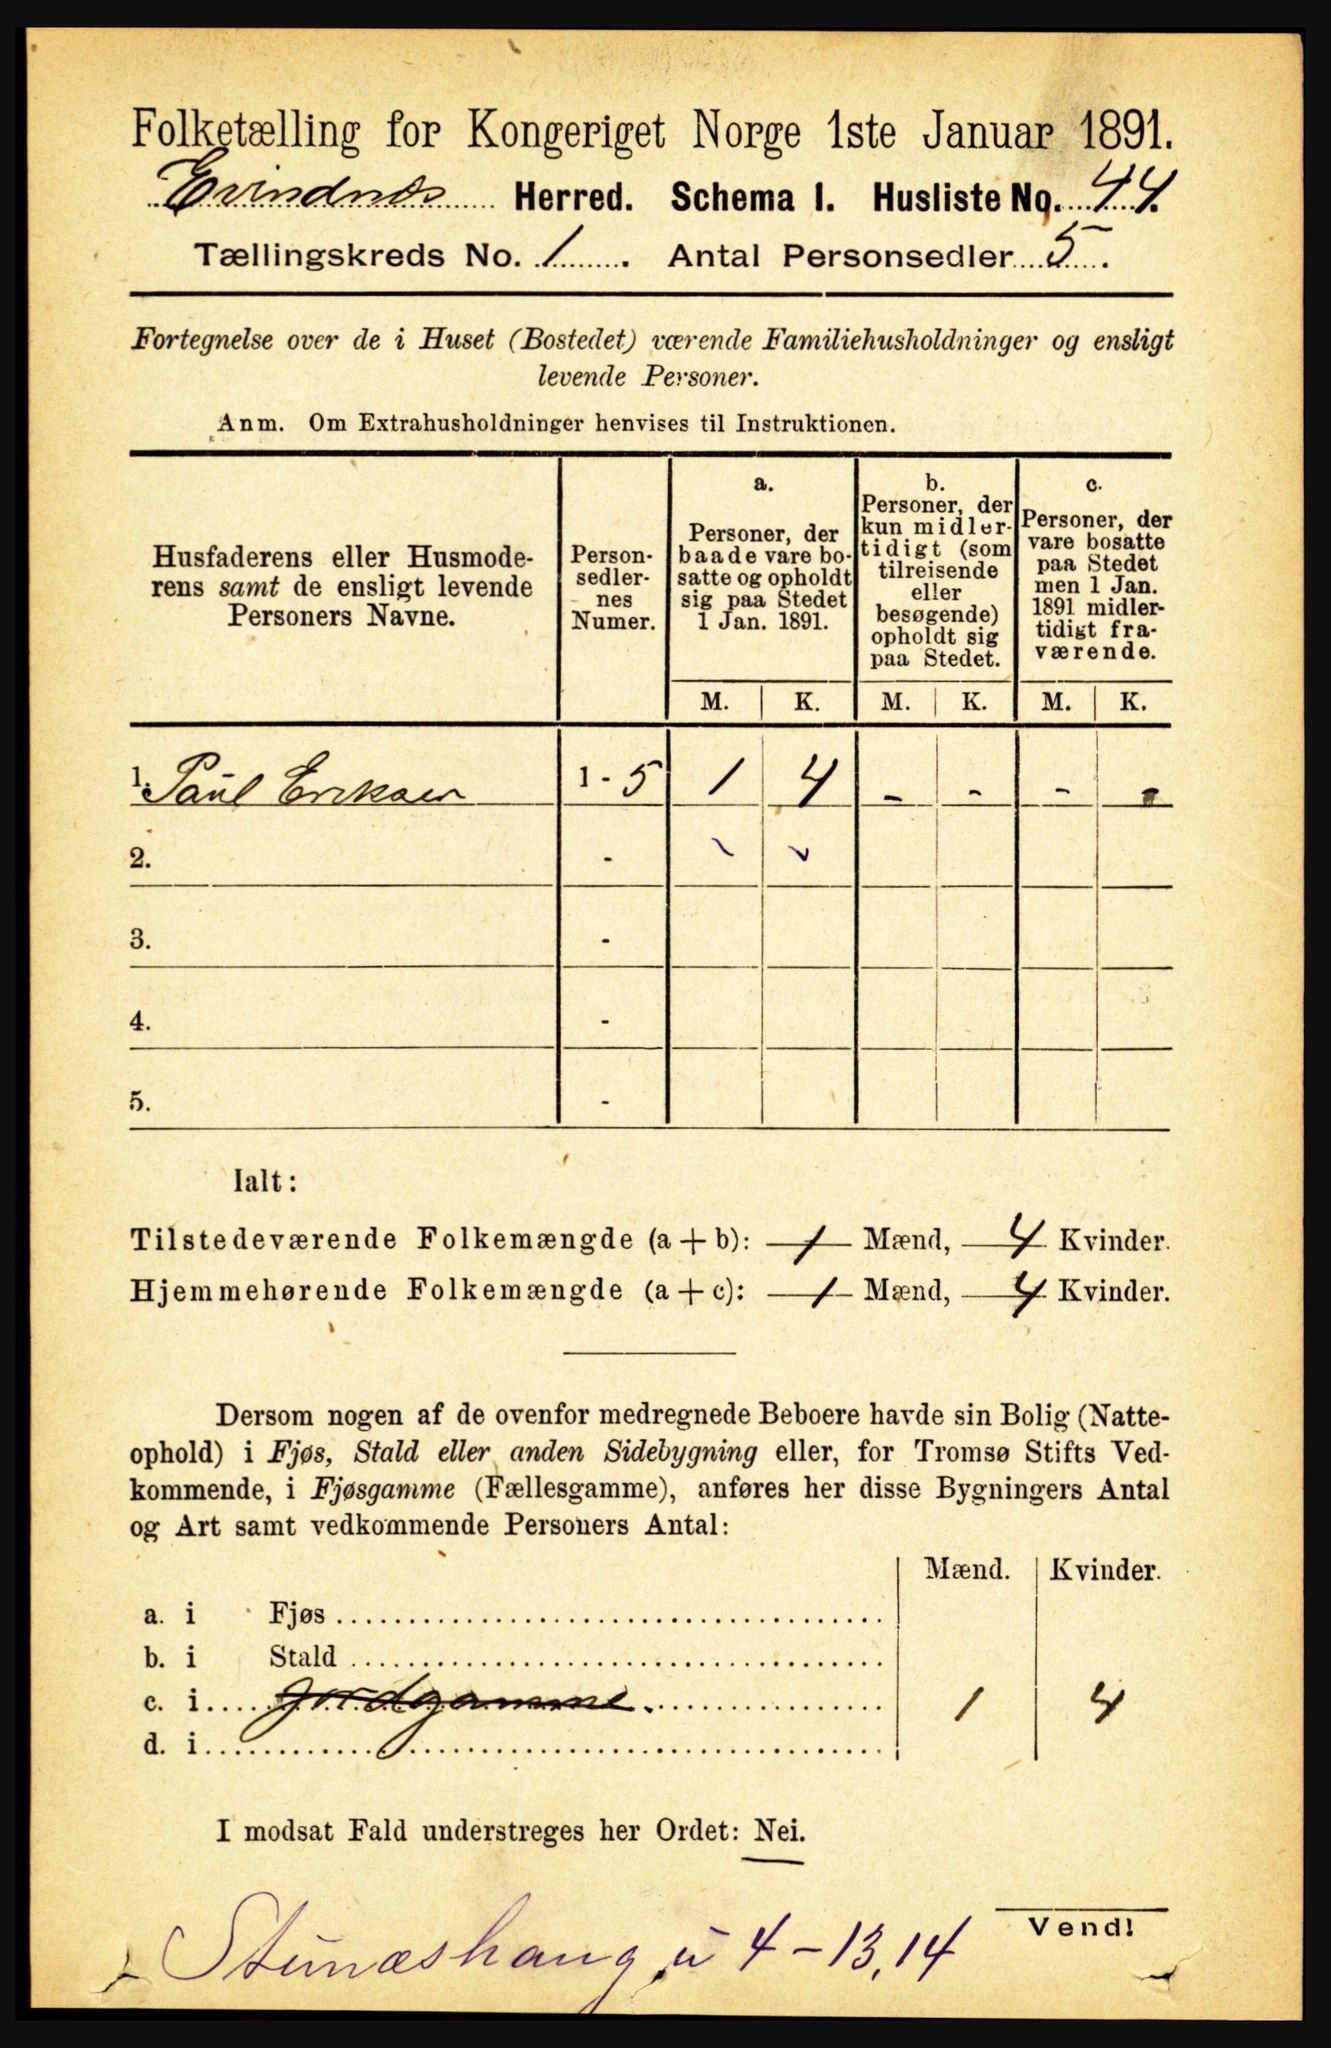 Folketælling for Kongeriget Norge 1ste Januar 1891.
Evindnæs Herred. Schema I. Husliste No. 44.
Tællingskreds No. 1. Antal Personsedler 5.
Fortegnelse over de i Huset (Bostedet) værende Familiehusholdninger og ensligt
levende Personer.
Anm. Om Extrahusholdninger henvises til Instruktionen.
Husfaderens eller Husmode-
rens samt de ensligt levende
Personers Navne.
Person-
sedler-
nes
Numer.
a.
Personer, der
baade vare bo-
satte og opholdt
sig paa Stedet
1 Jan. 1891.
b.
Personer, der
kun midler-
tidigt (som
tilreisende
eller
besøgende)
opholdt sig
paa Stedet.
c.
Personer, der
vare bosatte
paa Stedet
men 1 Jan.
1891 midler-
tidigt fra-
værende.
M. K. M. K. M. K.
1. Paul Eriksen 1 - 5 1 4 - - - -
2. -
3. -
4. -
5. -
Ialt:
Tilstedeværende Folkemængde (a + b): 1 Mænd, 4 Kvinder.
Hjemmehørende Folkemængde (a + c): 1 Mænd, 4 Kvinder.
Dersom nogen af de ovenfor medregnede Beboere havde sin Bolig (Natte-
ophold) i Fjøs, Stald eller anden Sidebygning eller, for Tromsø Stifts Ved-
kommende, i Fjøsgamme (Fællesgamme), anføres her disse Bygningers Antal
og Art samt vedkommende Personers Antal:
Mænd. Kvinder.
a. i Fjøs
b. i Stald
c. i Jordgamme. 1 4
d. i
I modsat Fald understreges her Ordet: Nei.
Vend!
Stunæshaug u 4 - 13,14